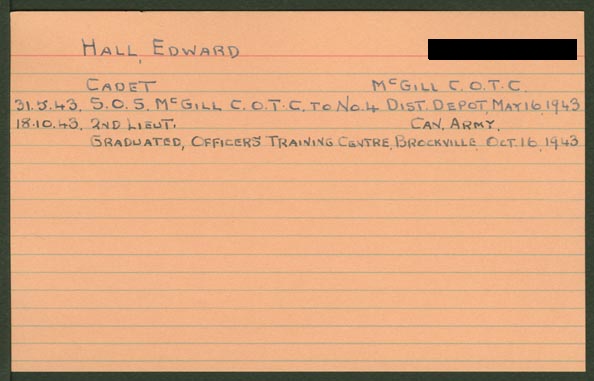 HALL, EDWARD
CADET McGILL C.O.T.C.
31.5.43. S.O.S. McGILL C.O.T.C. TO No.4 DIST. DEPOT, MAY 16, 1943
18.10.43. 2ND LIEUT. CAN. ARMY.
GRADUATED, OFFICERS TRAINING CENTRE, BROCKVILLE, OCT. 16, 1943